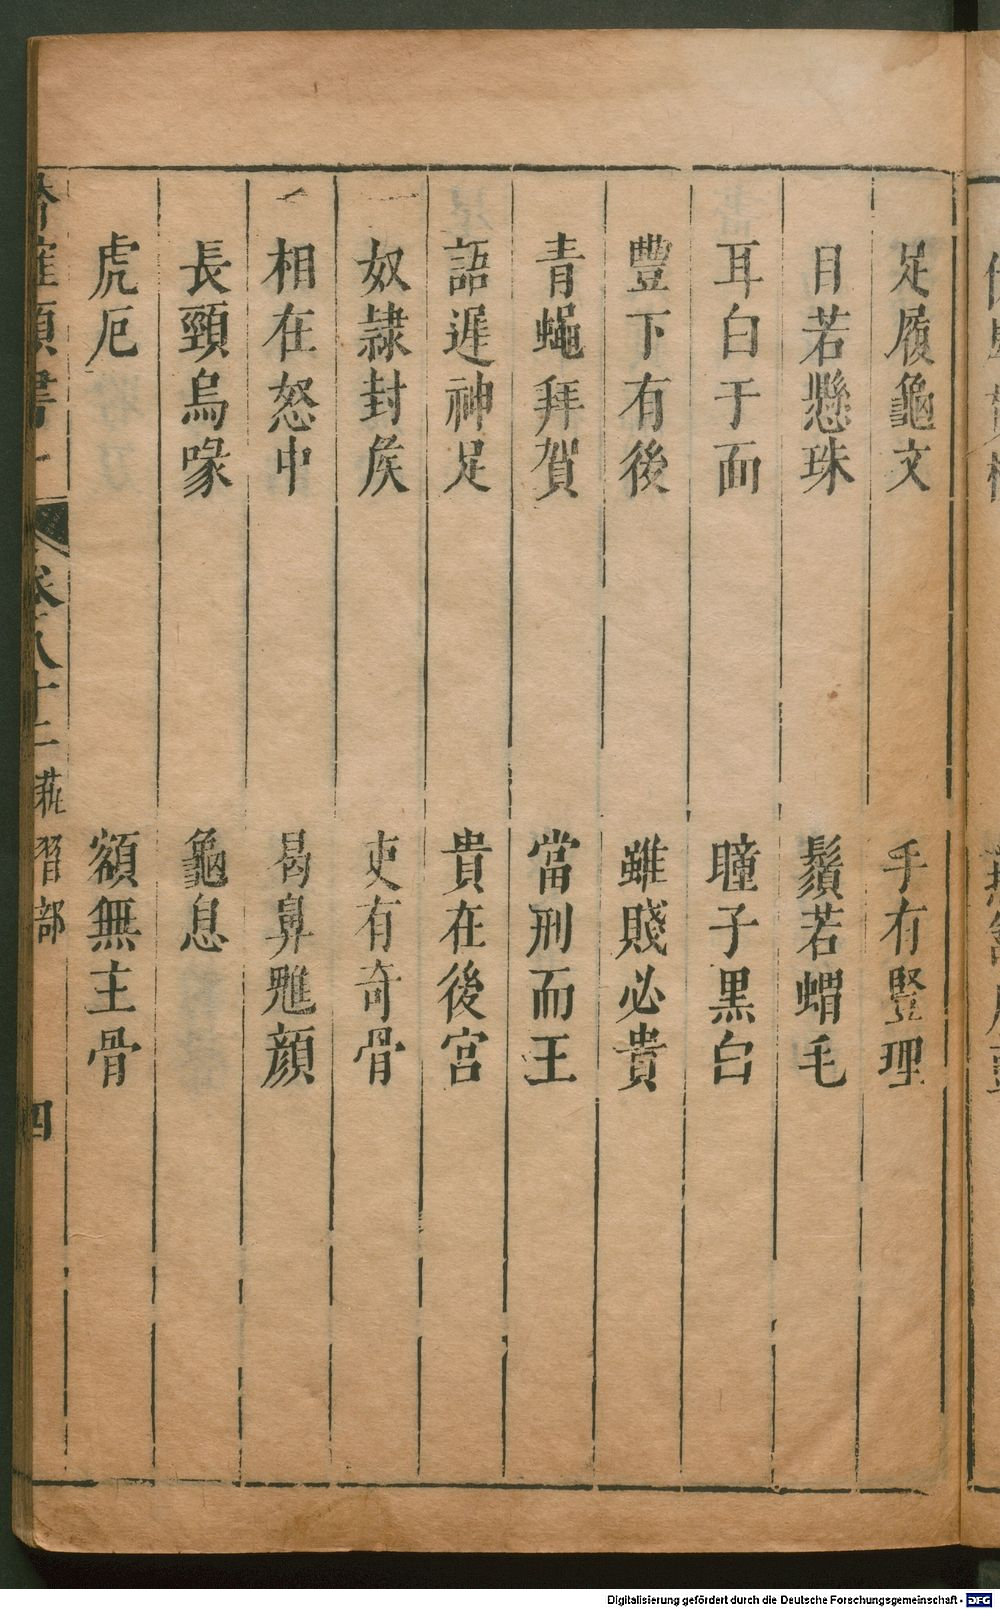 足履龜文　手有豎理
目若懸珠　鬚若蝟毛
耳白于面　瞳子黑白
豐下有後　雖賤必貴
青蠅拜賀　當刑而王
語遲神足　貴在後宮
奴隷封侯　吏有奇骨
相在怒中　曷鼻魋顔
長頸烏喙　龜息
虎厄　額無主骨
卷八十二 蓺習部
四
Digitalisierung gefördert durch die Deutsche Forschungsgemeinschaft - DFG